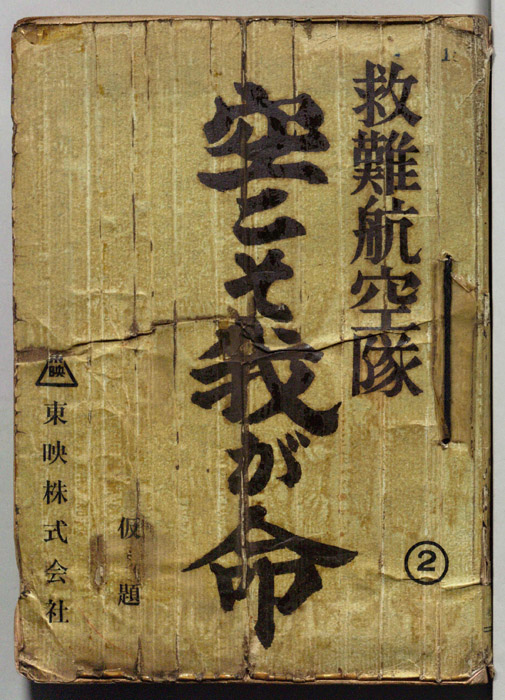 救難航空隊
空こそ我が命
②
仮題
東映
東映株式会社